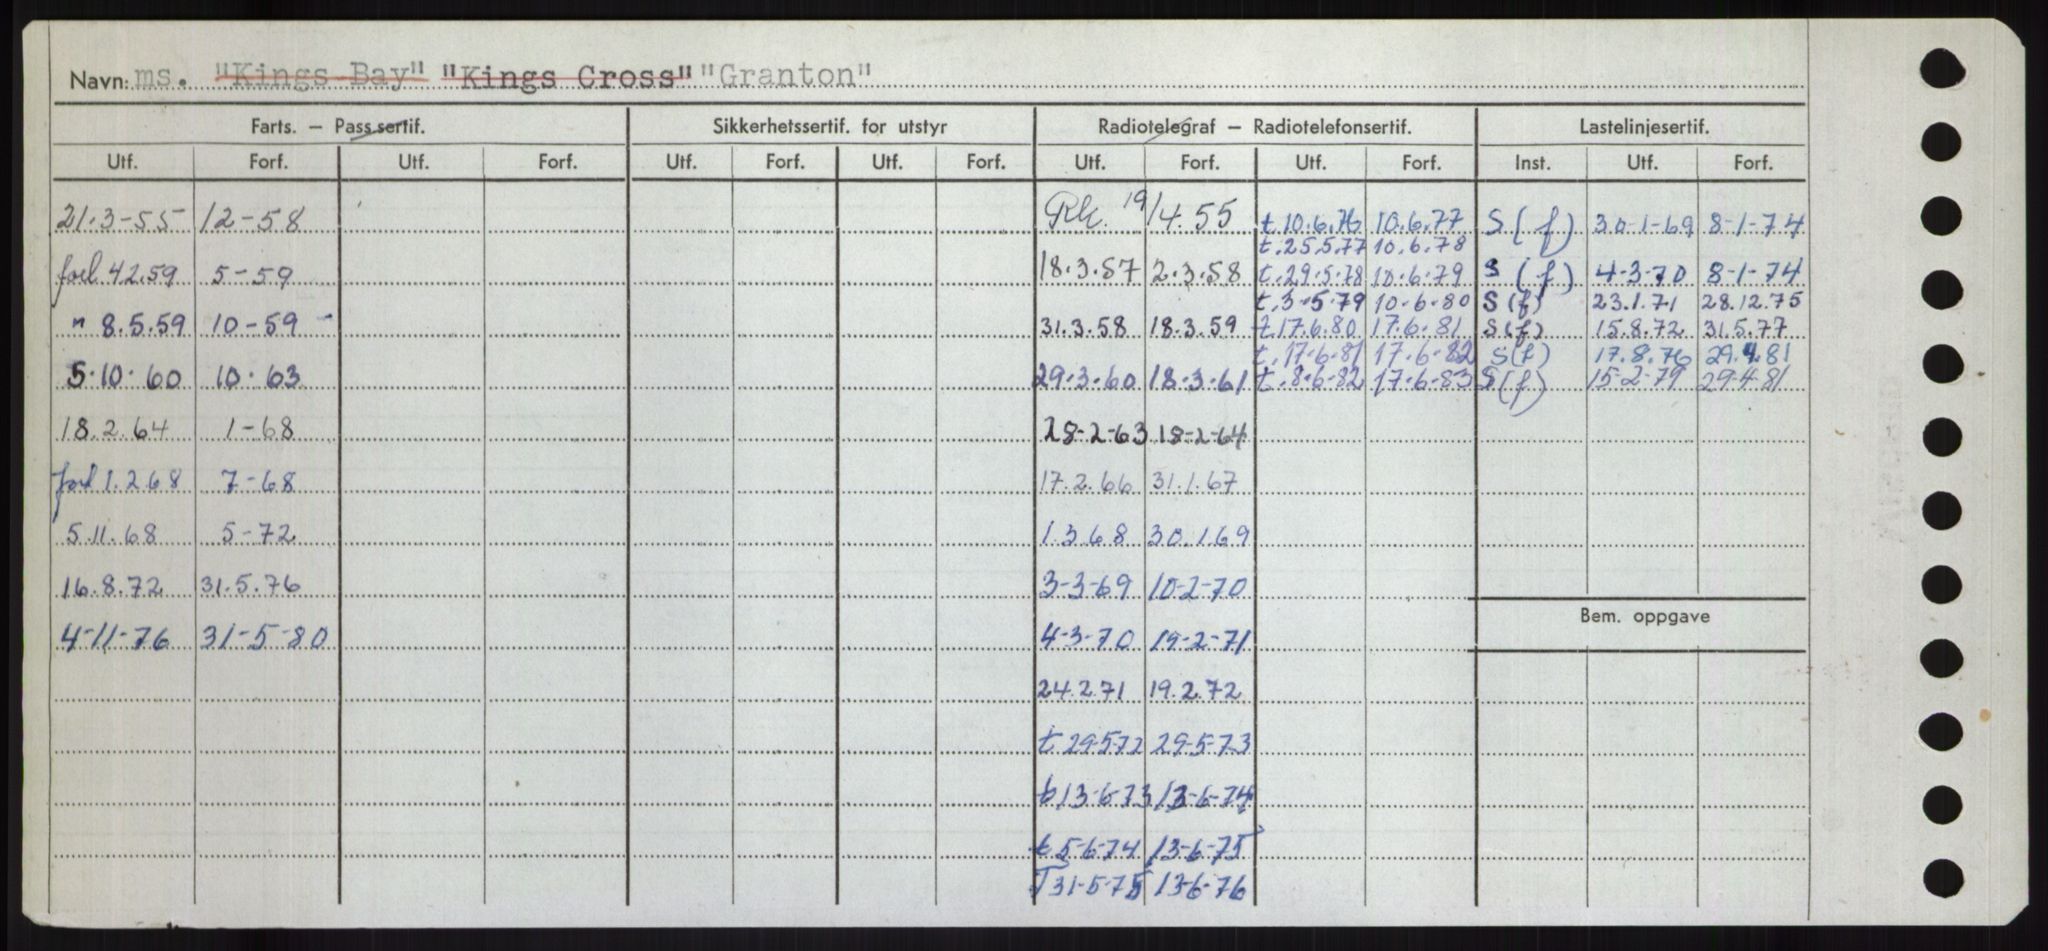 Navn: ms. "Kings Bay" "Kings Cross" "Granton"
Farts. – Pass sertif. Sikkerhetssertif. for utstyr Radiotelegraf – Radiotelefonsertif. Lastelinjesertif.
Utf. Forf. Utf. Forf. Utf. Forf. Utf. Forf. Utf. Forf. Utf. Forf. Inst. Utf. Forf.
21.3-55 12-58 Rk. 19/4.55 t.10.6.76 10.6.77 S(f) 30-1-69 8-1-74
t.25.5.77 10.6.78
forl 4.2.59 5-59 18.3.57 2.3.58 t.29.5.78 10.6.79 S(f) 4-3-70 8-1-74
t.3.5.79 10-6-80 S(f) 23.1.71 28.12.75
" 8.5.59 10-59 31.3.58 18.3.59 t 17.6.80 17.6.81 S(f) 15.8.72 31.5.77
t.17.6.81 17.6.82 S(f) 17.8.76 29.4.81
5.10.60 10.63 29.3.60 18.3.61 t.8.6.82 17.6.83 S(f) 15-2-79 29-4-81
18.2.64 1-68 28-2-63 18-2-64
forl 1.2.68 7-68 17.2.66 31.1.67
5.11.68 5-72 1.3.68 30.1.69
16.8.72 31.5.76 3-3-69 10-2-70
Bem. oppgave
4-11-76 31-5-80 4-3-70 19-2-71
24.2.71 19.2.72
t 29-5-72 29-5-73
t 13-6-73 13-6-74
t 5-6-74 13-6-75
T 31-5-75 13-6-76